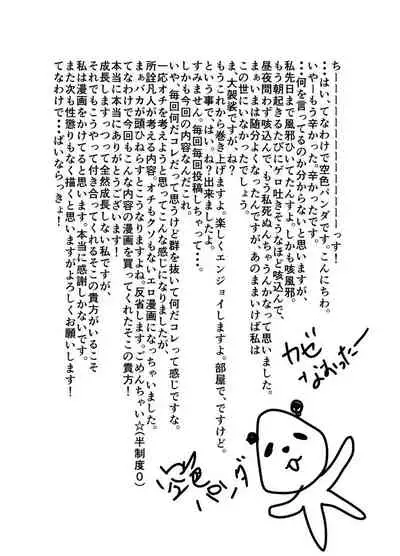 ちーーーーーーーーーーーーーーっす!
・・はい、てなわけで空色パンダです。こんにちわ。
いやーもう辛かった。辛かったです。
・・何を言ってるのか分からないと思いますが、
私先日まで風邪ひいてたんすよ。しかも咳風邪。
もう朝起きるたびにゲロ吐きそうなほど咳込んで、
昼夜問わず咳込んで、もう私死ぬんちゃうんかなって思いました。
まぁいまは随分よくなったんですが、あのままいけば私は
この世にいなかったでしょう。
ま、大袈裟ですが、ね?
もうこれから巻き上げますよ。楽しくエンジョイしますよ。部屋で、ですけど。
という事で、はい。ね?出来ましたよ。
すみません。毎回毎回投稿しちゃって・・・。
しかも今回の内容なんだこれ。
いや、毎回何だコレって思うけど群を抜いて何だコレって感じですな。
一応オチを考えようと思ってこんな感じになりましたが、
所詮凡人が考える内容、オチもクソもないエロ漫画になっちゃいました。
まぁバカが頭ひねらすとこうなりますよね。反省します。ごめんちゃい☆(半制度0)
てなわけで今回もこんな内容の漫画を買ってくれたそこの貴方!
本当に本当にありがとうございます!
成長しますつって全然成長しない私ですが、
それでもこうやって付き合ってくれるそこの貴方がいるこそ
私は漫画をかけてると思います。本当に感謝しかないです。
また次も性懲りもなく描くと思いますがよろしくお願いします!
てなわけで・・・ばいならっきょ!
カゼ
なおったー
空色
パンダ